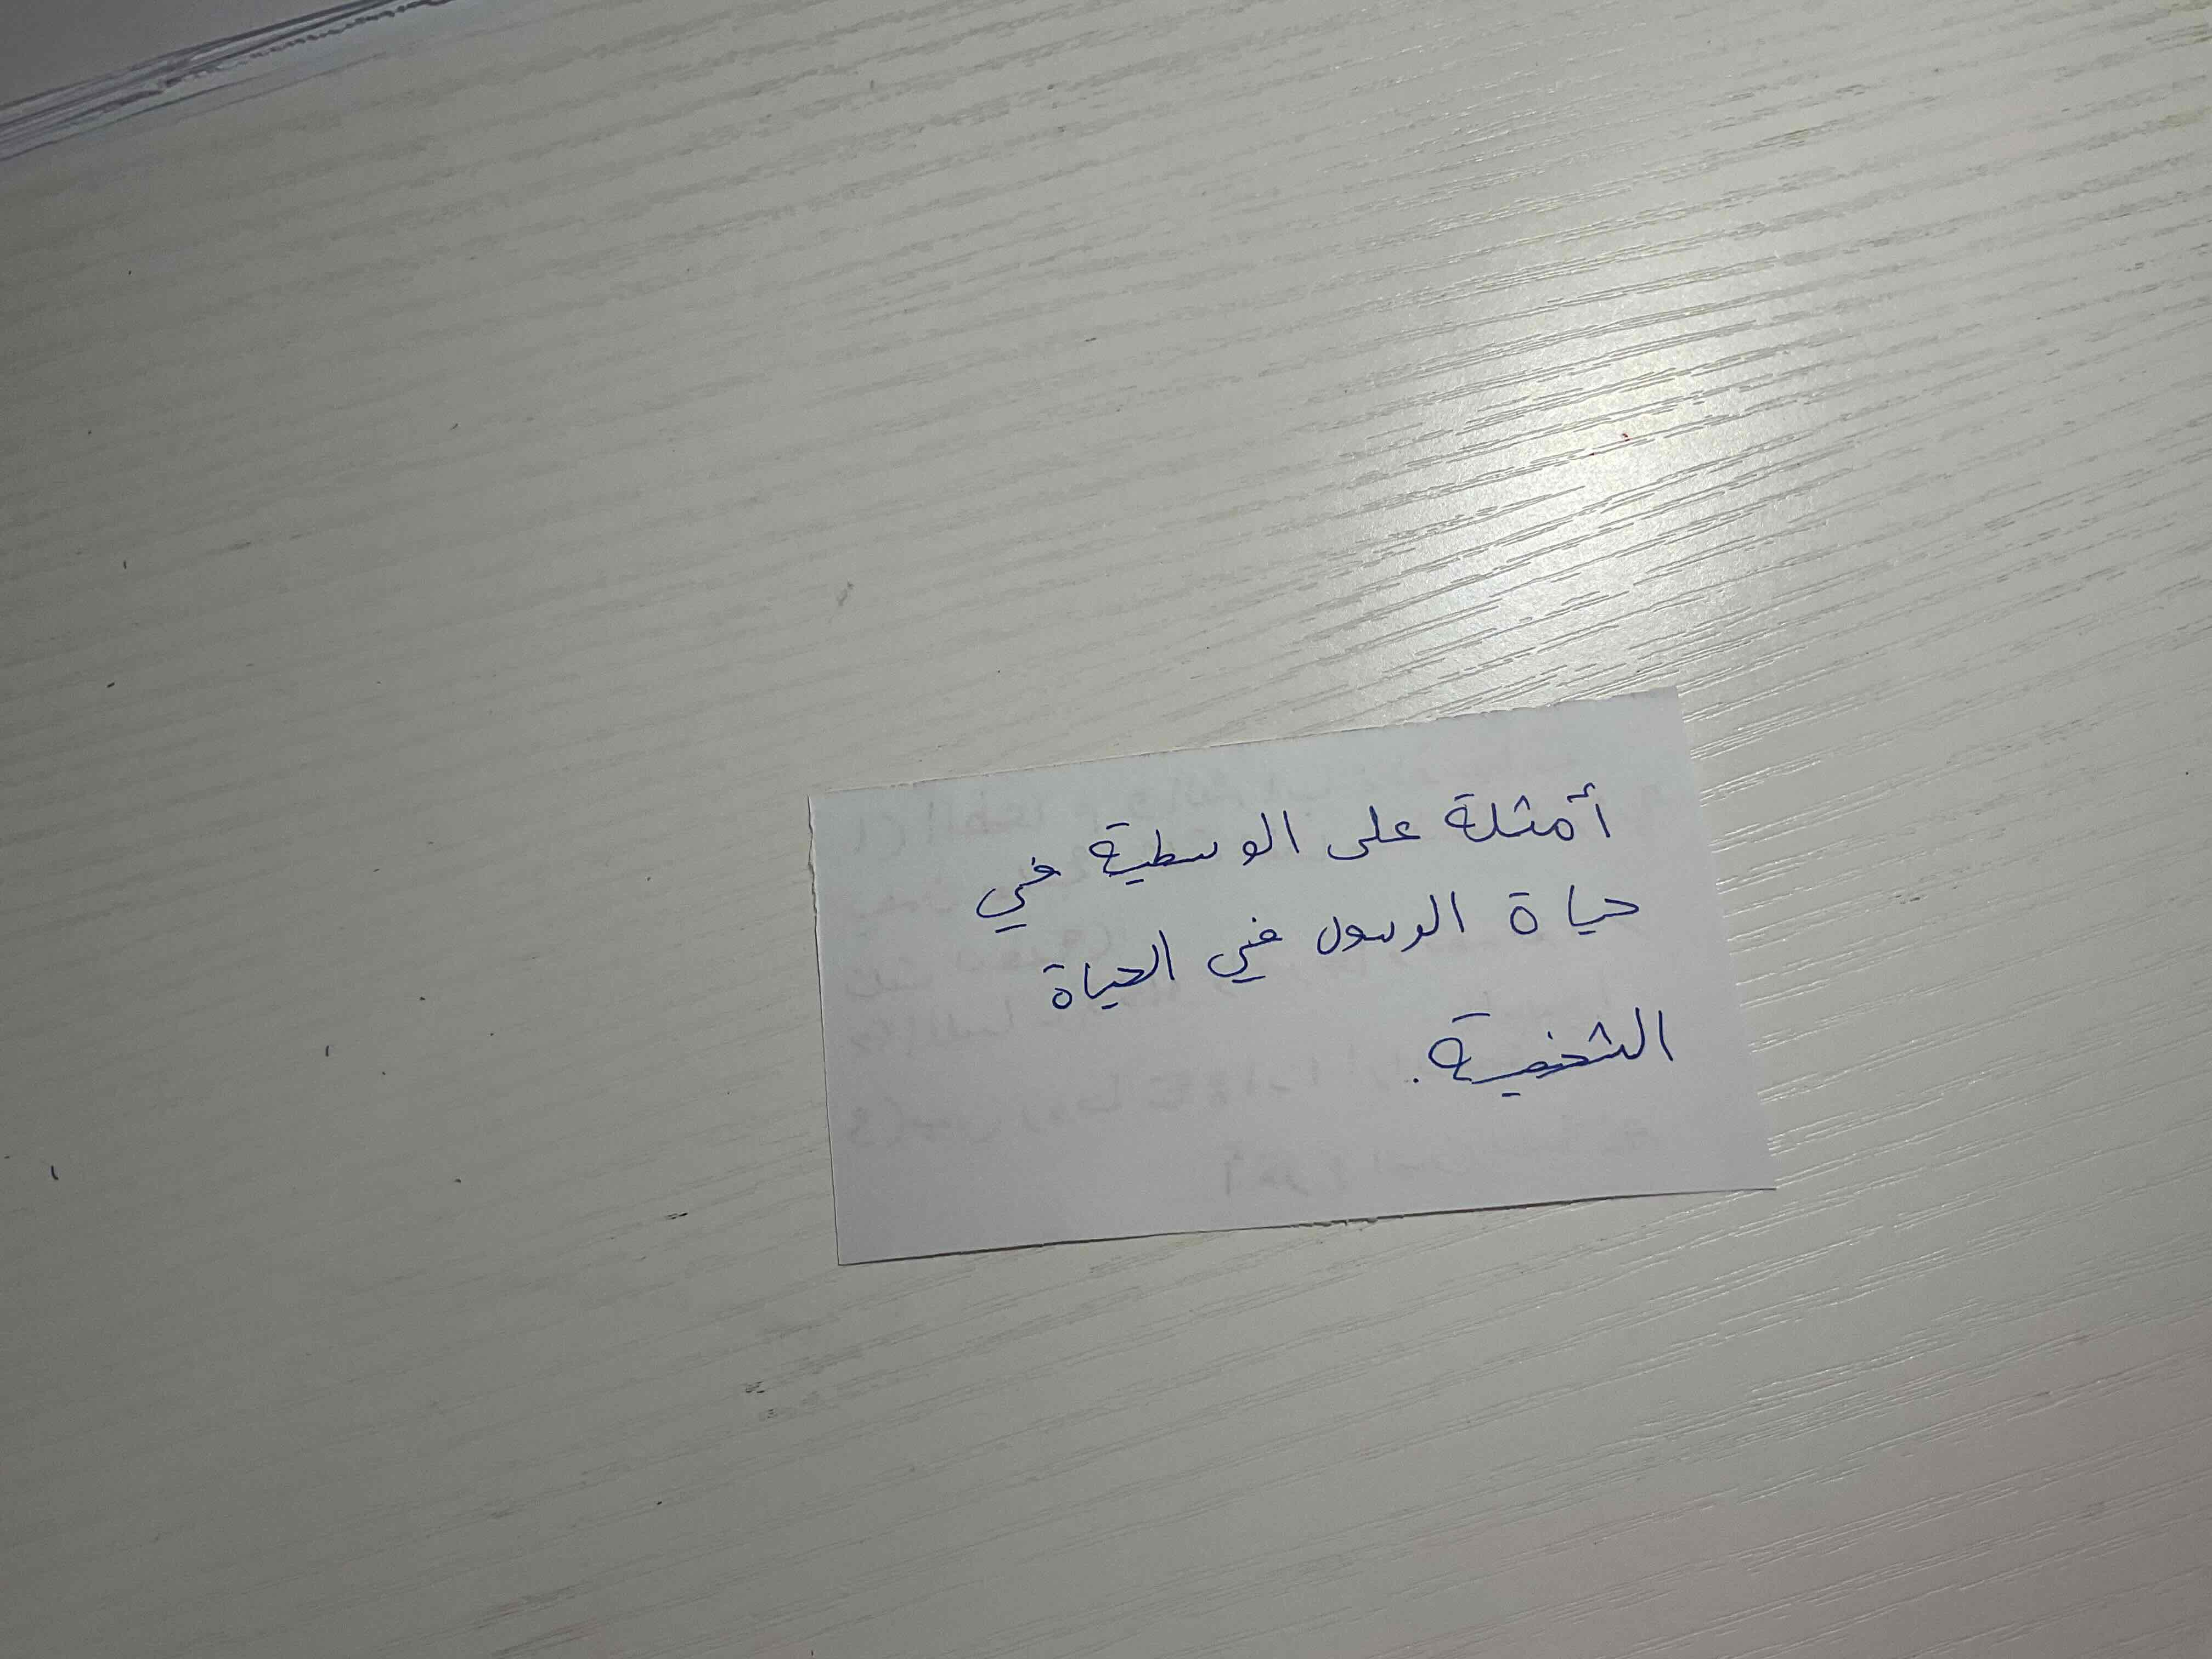 أمثلة على الوسطية في
حياة الرسول في الحياة
الشخصية.